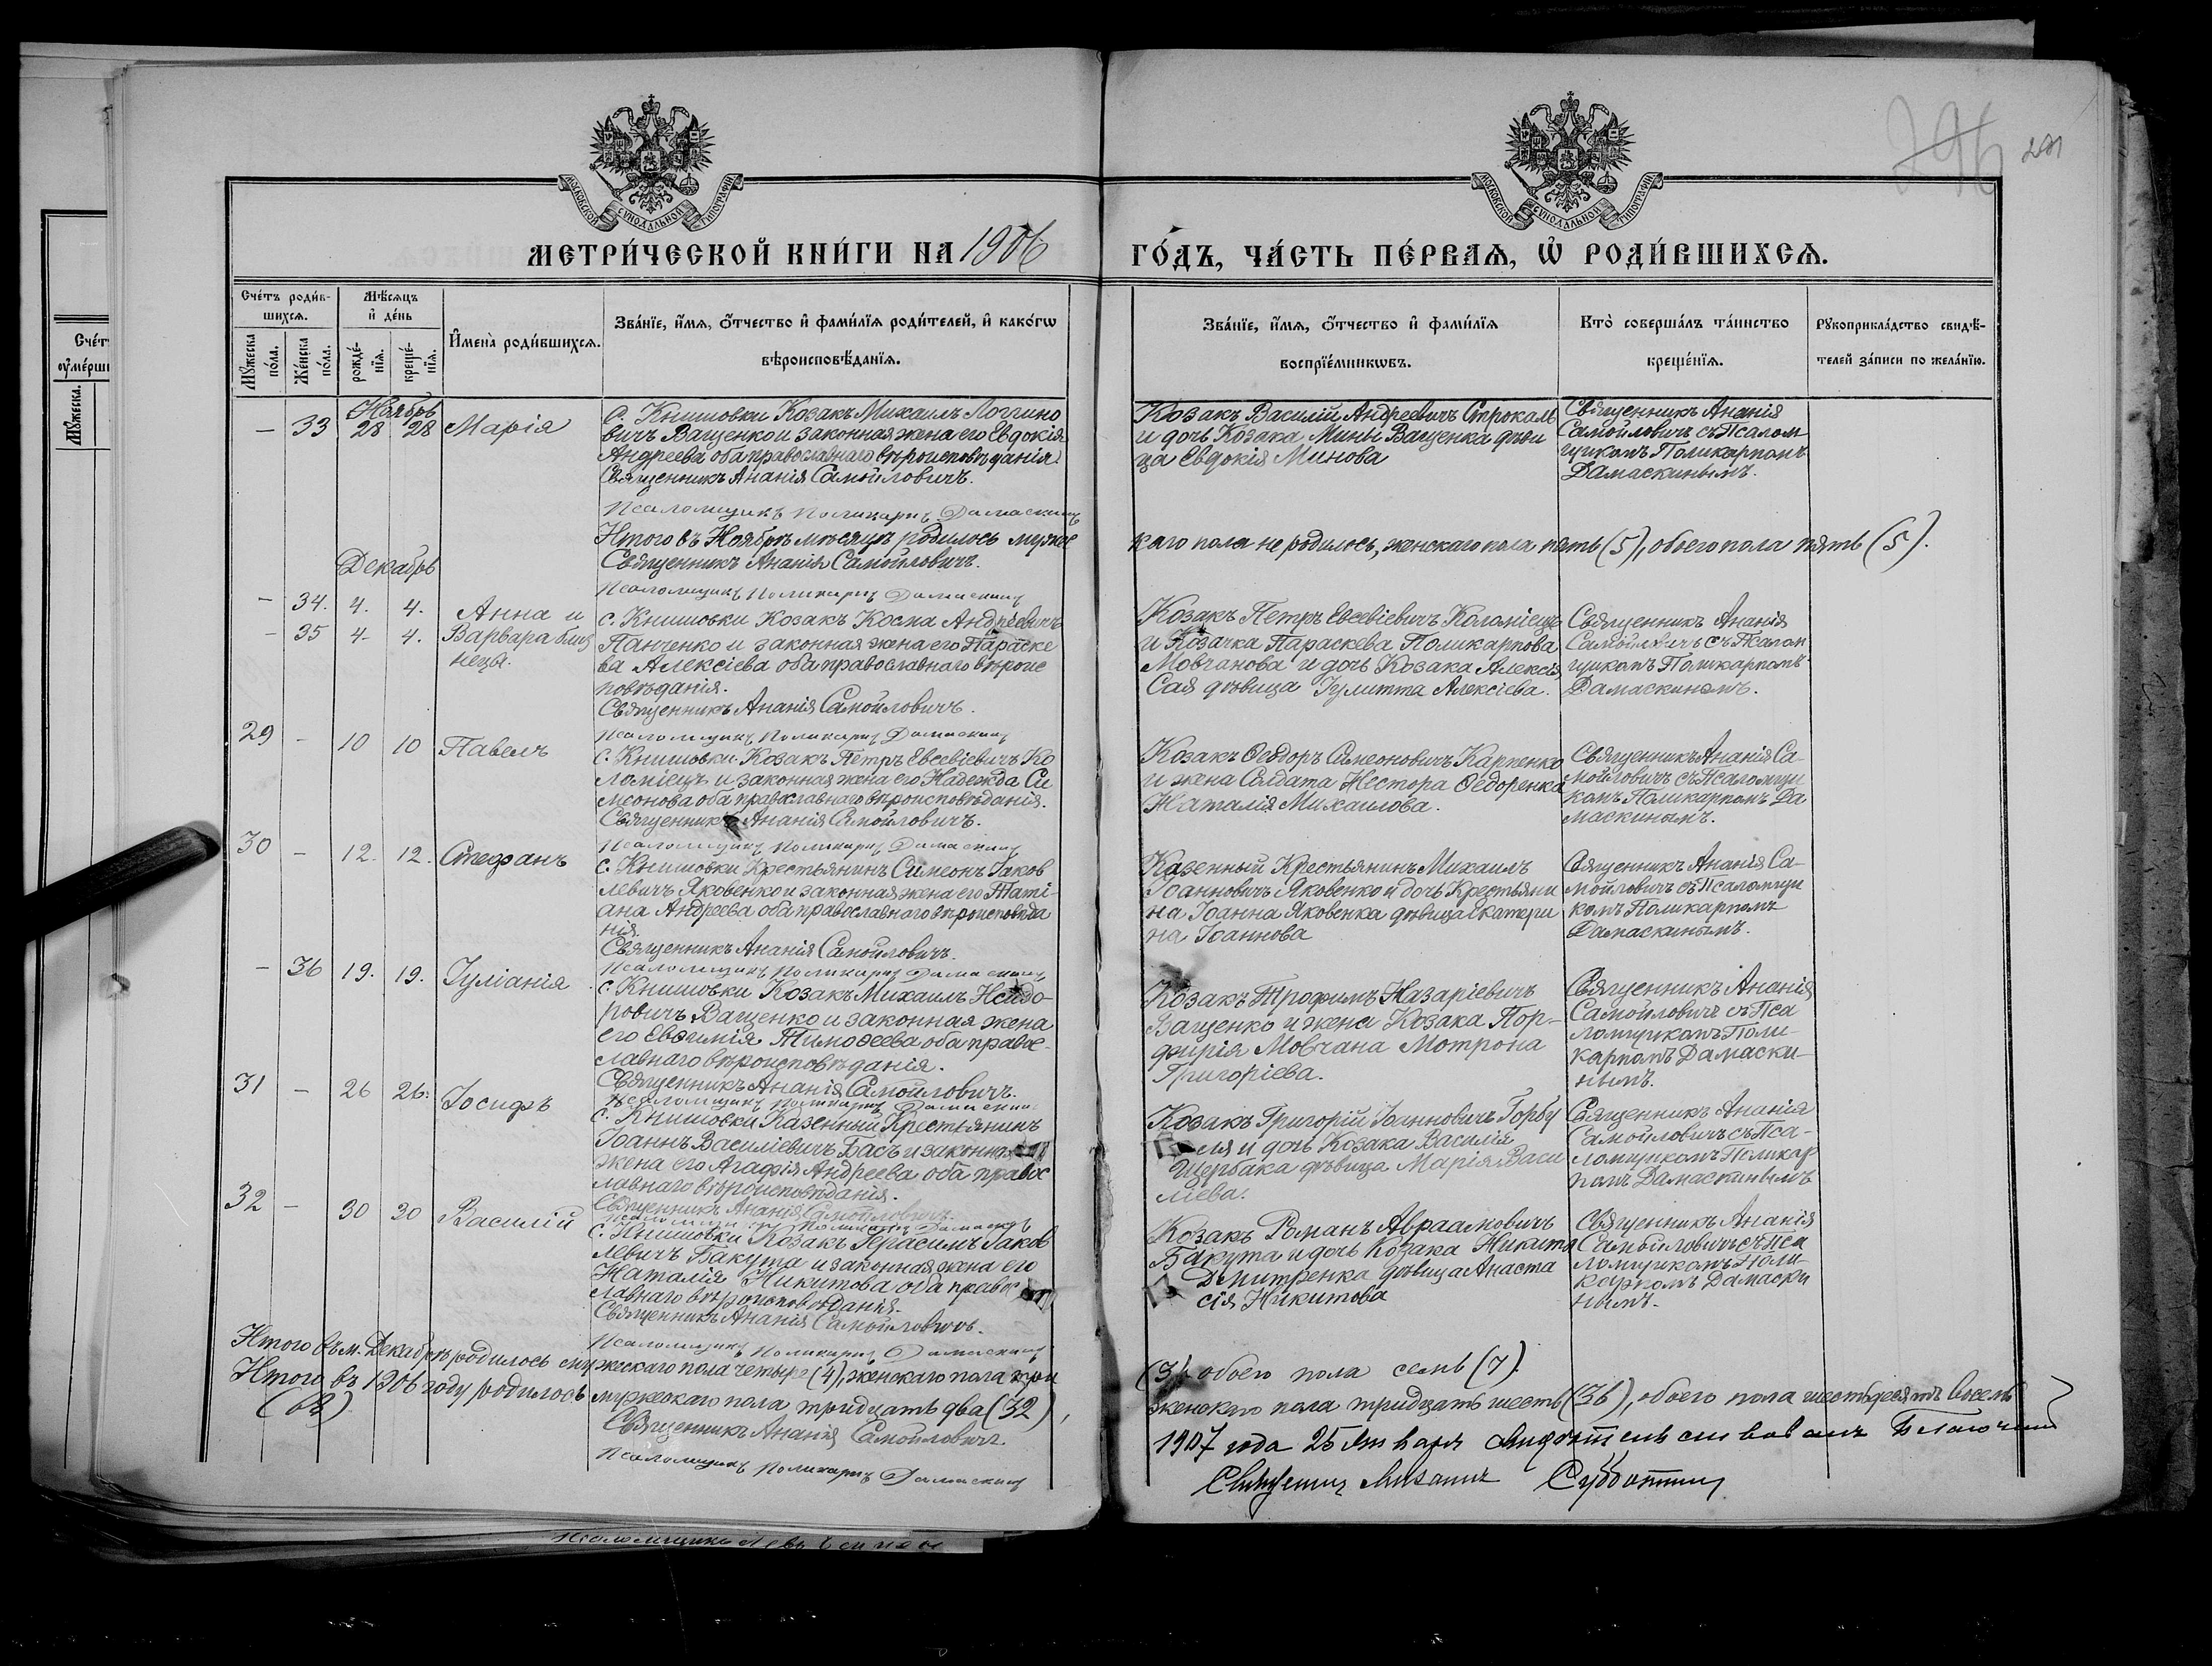 796 281
МОСКОВСКОЙ СѴНОДАЛЬНОЙ ТИПОГРАФИИ
МОСКОВСКОЙ СѴНОДАЛЬНОЙ ТИПОГРАФИИ
МЕТРИ́ЧЕСКОЙ КНИ́ГИ НА 1906 ГО́ДЪ, ЧА́СТЬ ПЕ́РВАѦ, Ѡ҆ РОДИ́ВШИХСѦ.
Сче́тъ роди́в-
шихсѧ.
Мꙋ́жеска по́ла.
Же́нска по́ла.
Мѣ́сѧцъ
и҆ де́нь
рожде́-нїѧ.
креще́-нїѧ.
И҆мена̀ роди́вшихсѧ.
Зва́нїе, и҆́мѧ, ѻ҆́тчество и҆ фами́лїѧ роди́телей, и҆ како́гѡ
вѣроисповѣ́данїѧ.
Зва́нїе, и҆́мѧ, ѻ҆́тчество и҆ фами́лїѧ
воспрїе́мникѡвъ.
Кто̀ соверша́лъ та́инство
креще́нїѧ.
Рꙋкоприкла́дство свидѣ́-
телей за́писи по жела́нїю.
Сче́т
оу҆ме́рши
Мꙋ́жеска.
Ноябрь
— 33 28 28 Марія
С. Кнышовки Козакъ Михаилъ Логгино
вичъ Ващенко и законная жена его Евдокія
Андреева оба православнаго вѣроисповѣданія.
Священникъ Ананія Самойловичъ.
Псаломщикъ Поликарпъ Дамаскинъ
Козакъ Василій Андреевичъ
и дочь Козака Мины Ващенка дѣви
ца Евдокія Минова
Священникъ Ананія
Самойловичъ съ Псалом
щикомъ Поликарпомъ
Дамаскинымъ.
Итого въ Ноябрѣ мѣсяцѣ родилось мужес
каго пола не родилось, женскаго пола пять (5), обоего пола пять (5).
Священникъ Ананія Самойловичъ.
Псаломщикъ Поликарпъ Дамаскинъ
Декабрь
— 34. 4. 4. Анна и
— 35 4. 4. Варвара близ
неца.
с. Кнышовки Козакъ Косма Андреевичъ
Панченко и законная жена его Параске
ва Алексіева оба православнаго вѣроис
повѣданія.
Священникъ Ананія Самойловичъ.
Псаломщикъ Поликарпъ Дамаскинъ
Козакъ Петръ Евсевіевичъ Коломіецъ
и Козачка Параскева Поликарпова
Мовчанова и дочь Козака Алексія
Сая дѣвица Іулитта Алексіева.
Священникъ Ананія
Самойловичъ съ Псалом
щикомъ Поликарпомъ
Дамаскинымъ.
29 — 10 10 Павелъ
с. Кнышовки Козакъ Петръ Евсевіевичъ Ко
ломіецъ и законная жена его Надежда Си
меонова оба православнаго вѣроисповѣданія.
Священникъ Ананія Самойловичъ.
Псаломщикъ Поликарпъ Дамаскинъ
Козакъ Ѳеодоръ Симеоновичъ Карпенко
и жена Солдата Нестора Ѳедоренка
Наталія Михаилова.
Священникъ Ананія Са-
мойловичъ съ Псаломщи
комъ Поликарпомъ Да
маскинымъ.
30 — 12. 12. Стефанъ
с. Кнышовки Крестьянинъ Симеонъ Іаков
левичъ Яковенко и законная жена его Таті-
ана Андреева оба православнаго вѣроисповѣда
нія.
Священникъ Ананія Самойловичъ.
Псаломщикъ Поликарпъ Дамаскинъ
Казенный Крестьянинъ Михаилъ
Іоанновичъ Яковенко и дочь Крестьяни
на Іоанна Яковенка дѣвица Екатери
на Іоаннова
Священникъ Ананія Са-
мойловичъ съ Псаломщи
комъ Поликарпомъ
Дамаскинымъ.
— 36 19. 19. Іуліанія
с. Кнышовки Козакъ Михаилъ Исидо-
ровичъ Ващенко и законная жена
его Евѳимія Тимоѳеева оба право-
славнаго вѣроисповѣданія.
Священникъ Ананія Самойловичъ.
Псаломщикъ Поликарпъ Дамаскинъ
Козакъ Трофимъ Назаріевичъ
Ващенко и жена Козака Пор-
фирія Мовчана Мотрона
Григоріева.
Священникъ Ананія
Самойловичъ съ Пса
ломщикомъ Поли-
карпомъ Дамаски-
нымъ.
31 — 26 26. Іосифъ
с. Кнышовки Казенный Крестьянинъ
Іоаннъ Василіевичъ Басъ и законная
жена его Агафія Андреева оба правос
лавнаго вѣроисповѣданія.
Священникъ Ананія Самойловичъ.
Псаломщикъ Поликарпъ Дамаскинъ
Козакъ Григорій Іоанновичъ Горбу
ля и дочь Козака Василія
Щербака дѣвица Марія Васи
лiева.
Священникъ Ананія
Самойловичъ съ Пса-
ломщикомъ Поликар
помъ Дамаскинымъ
32 — 30 30 Василій
с. Кнышовки Козакъ Герасимъ Іаков
левичъ Бакута и законная жена его
Наталія Никитова оба правос
лавнаго вѣроисповѣданія.
Священникъ Ананія Самойловичъ.
Псаломщикъ Поликарпъ Дамаскинъ
Козакъ Романъ Авраамовичъ
Бакута и дочь Козака Никиты
Дмитренка дѣвица Анаста
сія Никитова
Священникъ Ананія
Самойловичъ съ Пса
ломщикомъ Поли-
карпомъ Дамаски
нымъ.
Итого въ м. Декабрѣ родилось мужескаго пола четыре (4), женскаго пола три
(3), обоего пола семь (7).
Итого въ 1906 году родилось мужескаго пола тридцать два (32),
женскаго пола тридцать шесть (36), обоего пола шестьдесятъ восемь
(68)
Священникъ Ананія Самойловичъ.
Псаломщикъ Поликарпъ Дамаскинъ
1907 года 25 Января свидѣтельствовалъ Благочин
Священникъ Михаилъ Субботинъ
Псаломщикъ